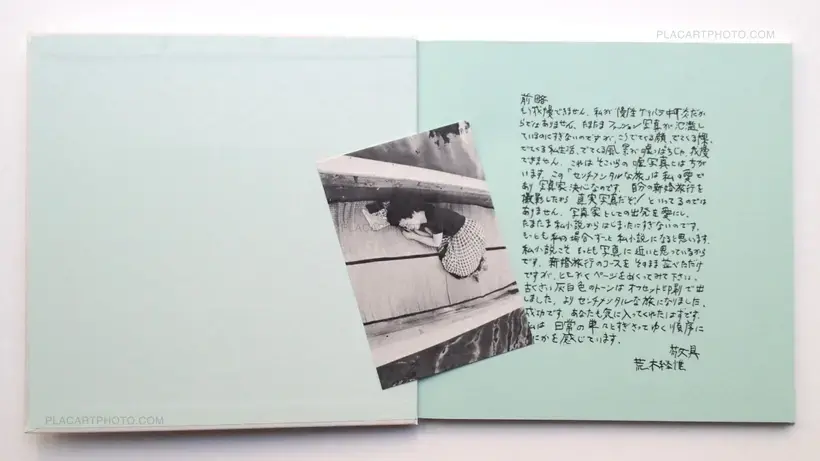 PLACARTPHOTO.COM
前略
もう我慢できません。私が慢性ゲリバラ中耳炎だか
らではありません。たまたまファッション写真が氾濫し
ているのにすぎないのですが、こうでてくる顔、でてくる裸、
でてくる私生活、でてくる風景が嘘っぱちじゃ、我慢
できません。これはそこいらの嘘写真とはちが
います。この「センチメンタルな旅」は私の愛で
あり写真家決心なのです。自分の新婚旅行を
撮影したから真実写真だぞ!といってるのでは
ありません。写真家としての出発を愛にし、
たまたま私小説からはじまったにすぎないのです。
もっとも私の場合ずーっと私小説になると思います。
私小説こそもっとも写真に近いと思っているから
です。新婚旅行のコースをそのまま並べただけ
ですが、ともかくページをめくってみて下さい。
古くさい灰白色のトーンはオフセット印刷で出
しました。よりセンチメンタルな旅になりました。
成功です。あなたも気に入ってくれたはずです。
私は日常の単々とすぎさってゆく順序に
にかを感じています。
敬具
荒木経惟
PLACARTPHOTO.COM